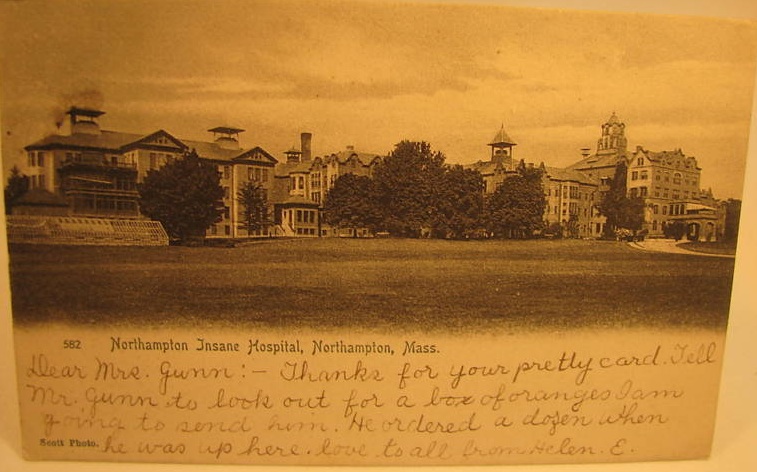 582 Northampton Insane Hospital, Northampton, Mass.
Dear Mrs. Gunn:— Thanks for your pretty card. Tell
Mr. Gunn to look out for a box of oranges I am
going to send him. He ordered a dozen when
he was up here. love to all from Helen. E.
Scott Photo.